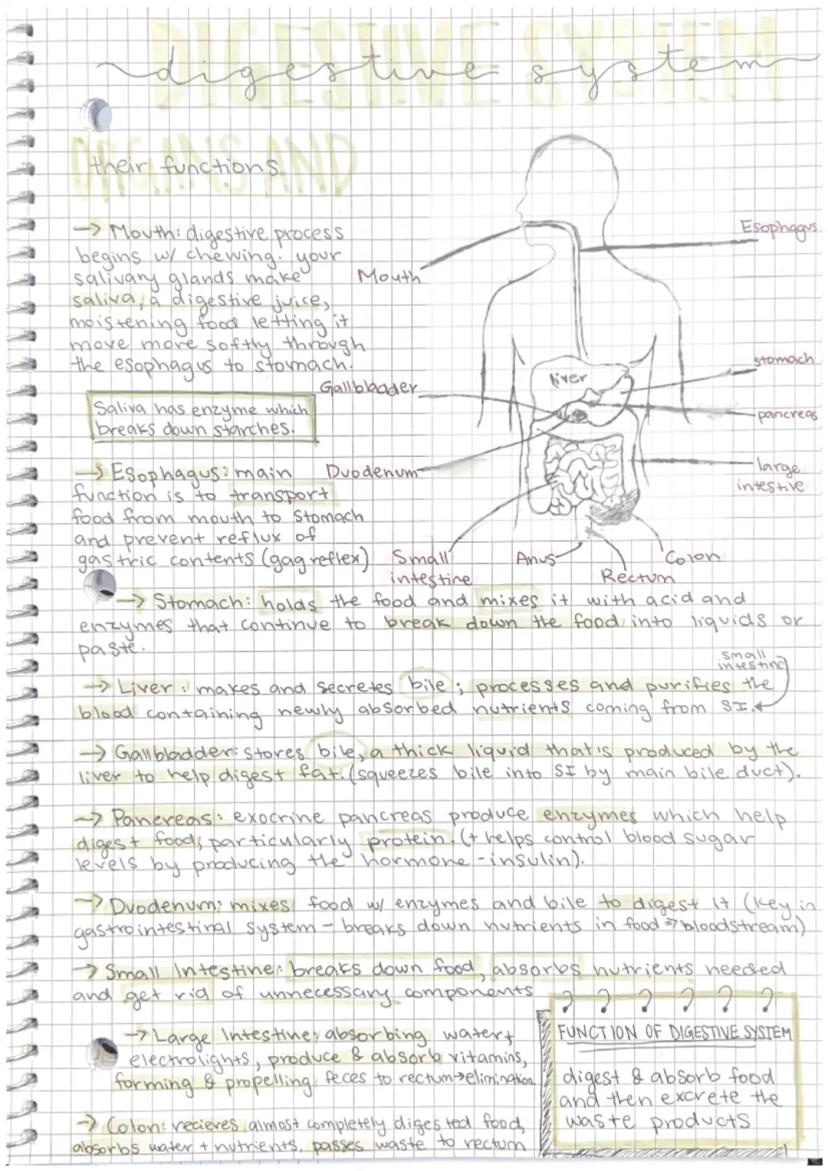 DIGESTIVE SYSTEM
digestive system
ORGANS AND
their functions
→ Mouth: digestive process
begins w/ chewing. your
salivary glands make
saliva, a digestive juice,
moistening food letting it
move more softly through
the esophagus to stomach.
Saliva has enzyme which
breaks down starches.
→ Esophagus: main
function is to transport
food from mouth to stomach
and prevent reflux of
gastric contents (gag reflex)
Mouth
Esophagus
liver
Gallbladder
stomach
pancreas
Duodenum
large
intestive
Small
intestine
Anus
Rectum
Colon
→ Stomach: holds the food and mixes it with acid and
enzymes that continue to break down the food into liquids or
paste.
small
intestine
→ Liver: makes and secretes bile; processes and purifies the
blood containing newly absorbed nutrients coming from SI.
→ Gallbladder: stores bile, a thick liquid that's produced by the
liver to help digest fat. (squeezes bile into SI by main bile duct).
→ Pancreas: exocrine pancreas produce enzymes which help
digest food, particularly protein. (+ helps control blood sugar
levels by producing the hormone - insulin).
→ Duodenum: mixes food w/ enzymes and bile to digest it (key in
gastrointestinal system - breaks down nutrients in food ⇒ bloodstream)
→ Small Intestine: breaks down food, absorbs nutrients needed
and get rid of unnecessary components
→ Large Intestine: absorbing water +
electrolights, produce & absorb vitamins,
forming & propelling feces to rectum → elimination
→ Colon: recieves almost completely digested food,
absorbs water + nutrients. passes waste to rectum
FUNCTION OF DIGESTIVE SYSTEM
digest & absorb food
and then excrete the
waste products